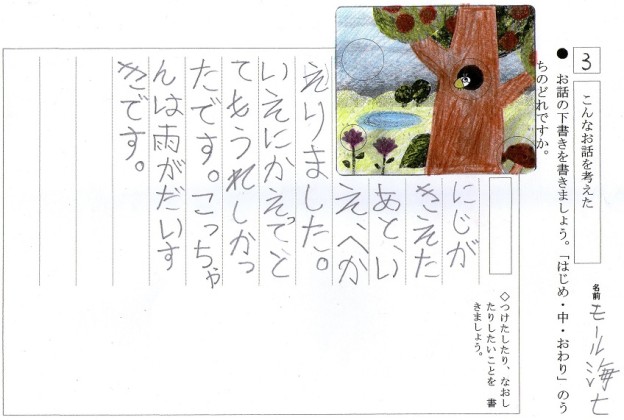 3
こんなお話を考えた
● お話の下書きを書きましょう。「はじめ・中・おわり」のう
ちのどれですか。
名前 モール海七
にじが
きえた
あと、い
えへか
えりました。
いえにかえってと
てもうれしかっ
たです。こっちゃ
んは雨がだいす
きです。
◇つけたしたり、なおし
たりしたいことを 書
きましょう。